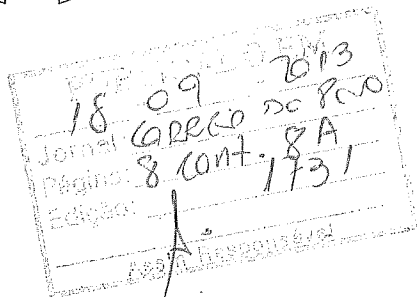 PUBLICADO EM
18 09 2013
Jornal: CORREIO DO POVO
Página: 8 cont. 8A
Edição: 1731
Assin. Responsável